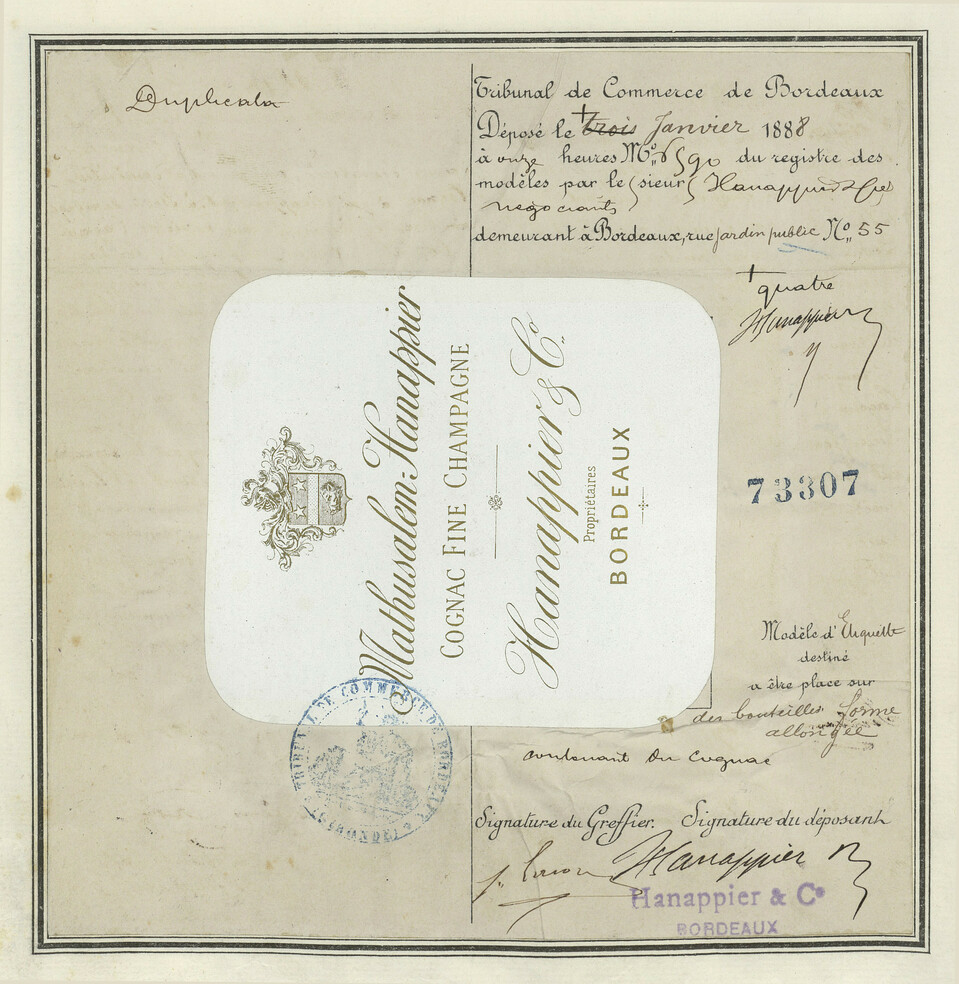 Duplicata
Tribunal de Commerce de Bordeaux
Déposé le + trois Janvier 1888
à onze heures No 6590 du registre des
modèles par le sieur Hanappier & Cie
négociants
demeurant à Bordeaux, rue Jardin public No 55
+ quatre
Hanappier
73307
Mathusalem=Hanappier
COGNAC FINE CHAMPAGNE
Hanappier & Co
Propriétaires
BORDEAUX
Modèle d'Etiquette
destiné
a être place sur
des bouteilles forme
allongée
contenant du Cognac
TRIBUNAL DE COMMERCE DE BORDEAUX
(GIRONDE)
Signature du Greffier. Signature du déposant
Hanappier
Hanappier & Co
BORDEAUX